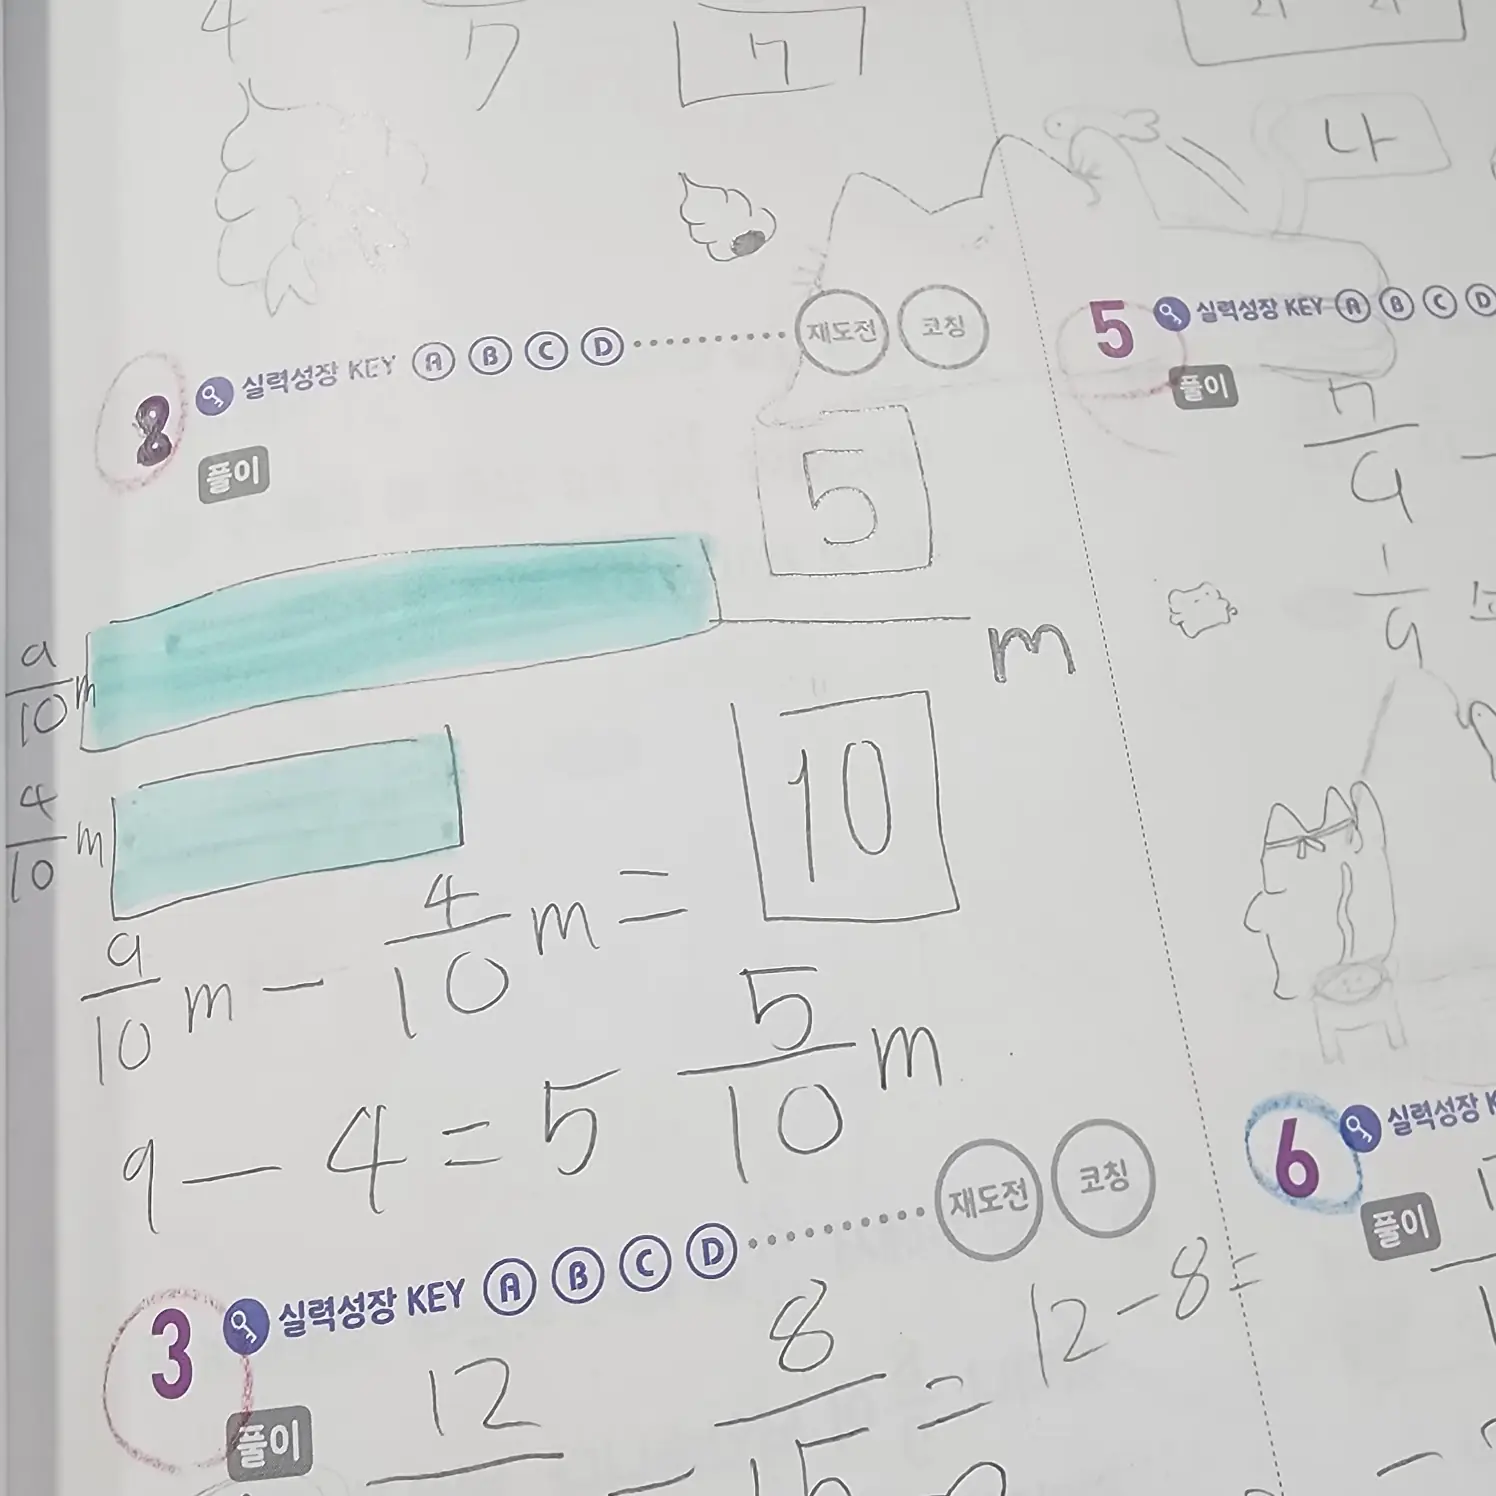 4 7 7
나
8 실력성장 KEY A B C D 재도전 코칭
풀이
5
m
10
9/10 m
4/10 m
9/10 m - 4/10 m =
5/10 m
9 - 4 = 5
3 실력성장 KEY A B C D 재도전 코칭
풀이
12 - 8/15 = 12-8=
5 실력성장 KEY A B C D
풀이
7/9 -
1/9
6 실력성장 K
풀이